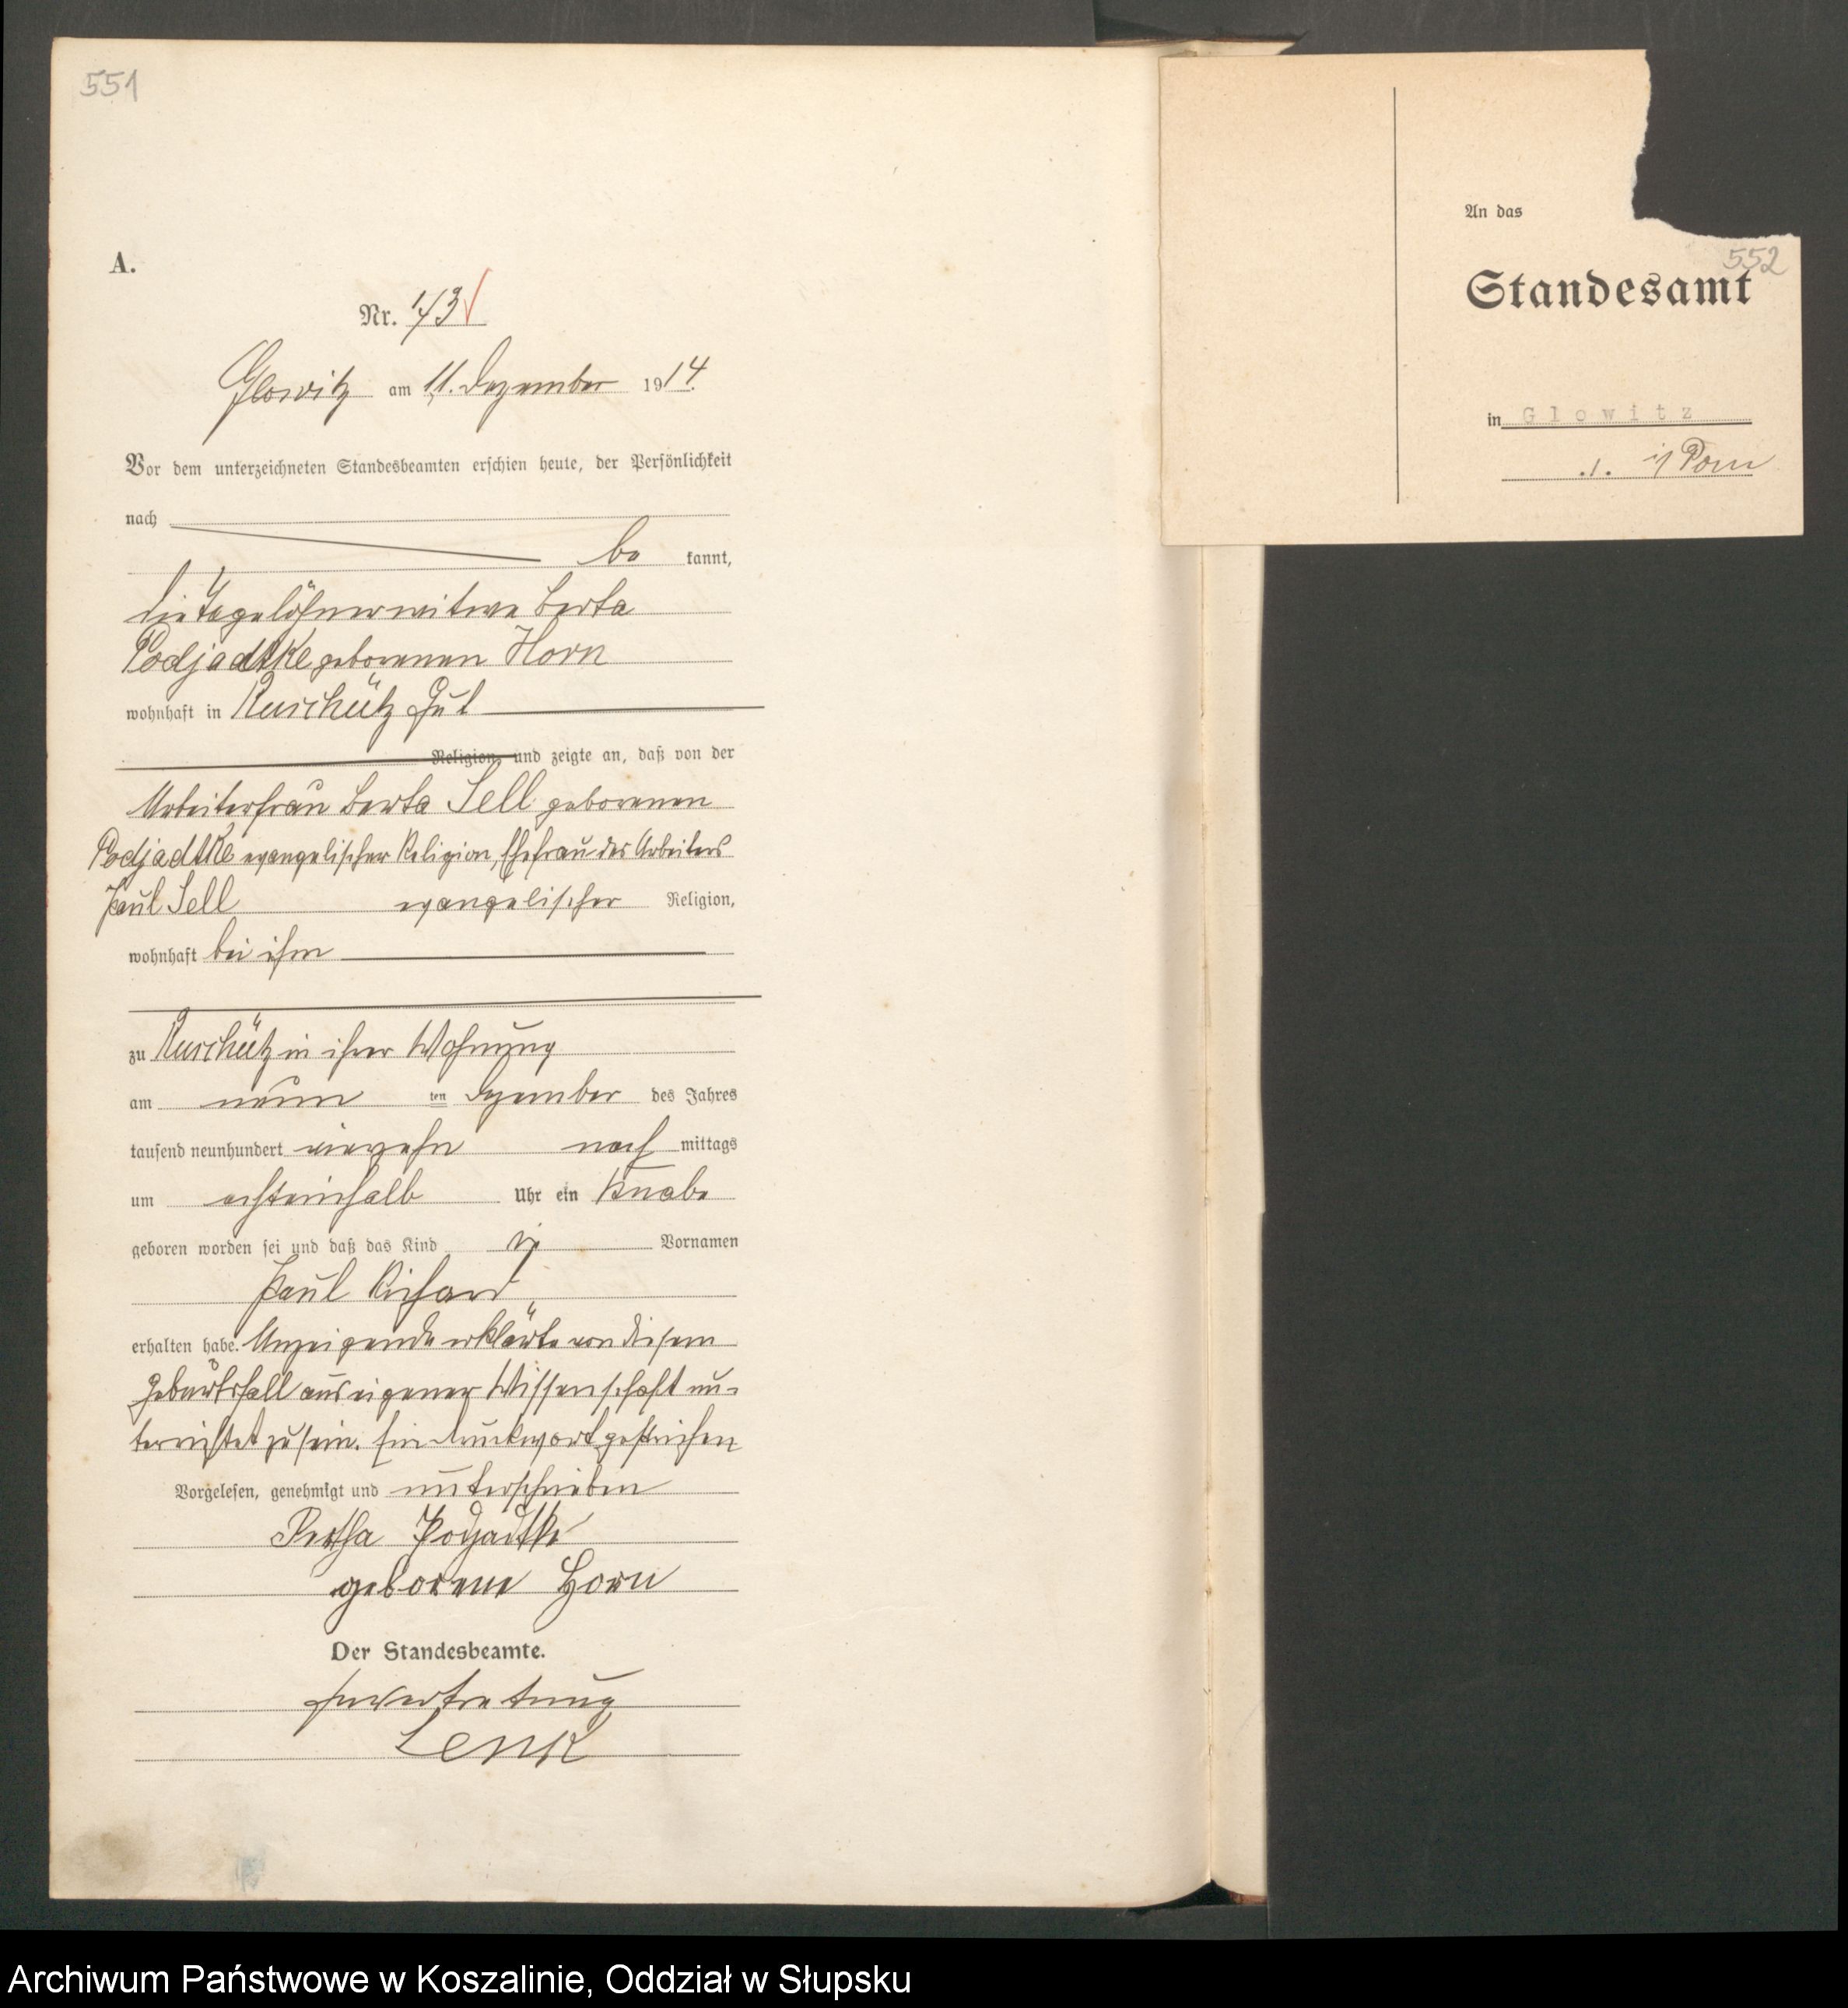 551
A.
Nr. 173
Glowitz am 11. Dezember 1914.
Vor dem unterzeichneten Standesbeamten erschien heute, der Persönlichkeit
nach
be kannt,
die Tagelöhnerwitwe Berta
Podjadtke geborenen Horn
wohnhaft in Ruschütz Gut
Religion, und zeigte an, daß von der
Arbeiterfrau Berta Sell geborenen
Podjadtke evangelischer Religion, Ehefrau des Arbeiters
Paul Sell evangelischer Religion,
wohnhaft bei ihm
zu Ruschütz in ihrer Wohnung
am neun ten Dezember des Jahres
tausend neunhundert vierzehn nach mittags
um achteinhalb Uhr ein Knabe
geboren worden sei und daß das Kind die Vornamen
Paul Richard
erhalten habe. Anzeigende erklärte von diesem
Geburtsfall aus eigener Wissenschaft un-
terrichtet zu sein. Ein Druckwort gestrichen
Vorgelesen, genehmigt und unterschrieben
Bertha Podjadtke
geborene Horn
Der Standesbeamte.
In Vertretung
Lenk
An das
552
Standesamt
in Glowitz
i/ Pom
Archiwum Państwowe w Koszalinie, Oddział w Słupsku